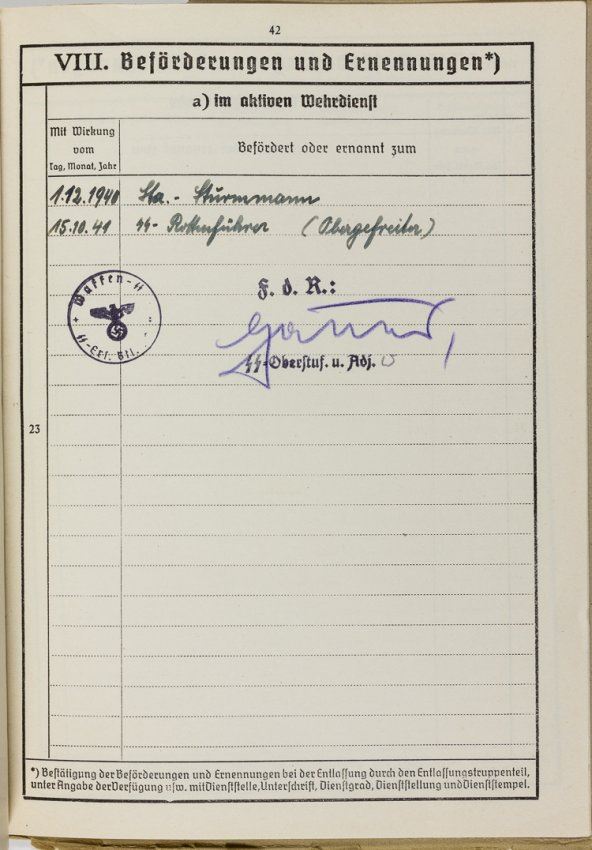 42
VIII. Beförderungen und Ernennungen*)
a) im aktiven Wehrdienst
Mit Wirkung
vom
Tag, Monat, Jahr
Befördert oder ernannt zum
1.12.1940 Sta.- Sturmmann
15.10.41 SS- Rottenführer (Obergefreiter)
Waffen-SS
SS-Ers. Btl.
F. d. R.:
SS-Oberstuf. u. Adj.
23
*) Bestätigung der Beförderungen und Ernennungen bei der Entlassung durch den Entlassungstruppenteil,
unter Angabe der Verfügung usw. mit Dienststelle, Unterschrift, Dienstgrad, Dienststellung und Dienststempel.